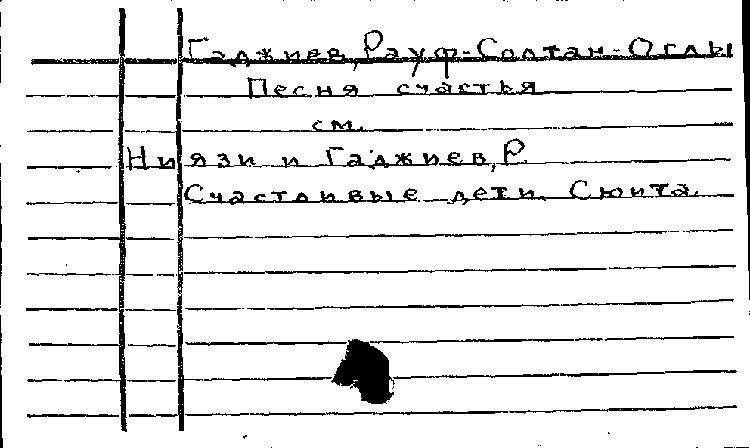 Гаджиев, Рауф-Солтан-Оглы
Песня счастья
см.
Ниязи и Гаджиев, Р.
Счастливые дети. Сюита.